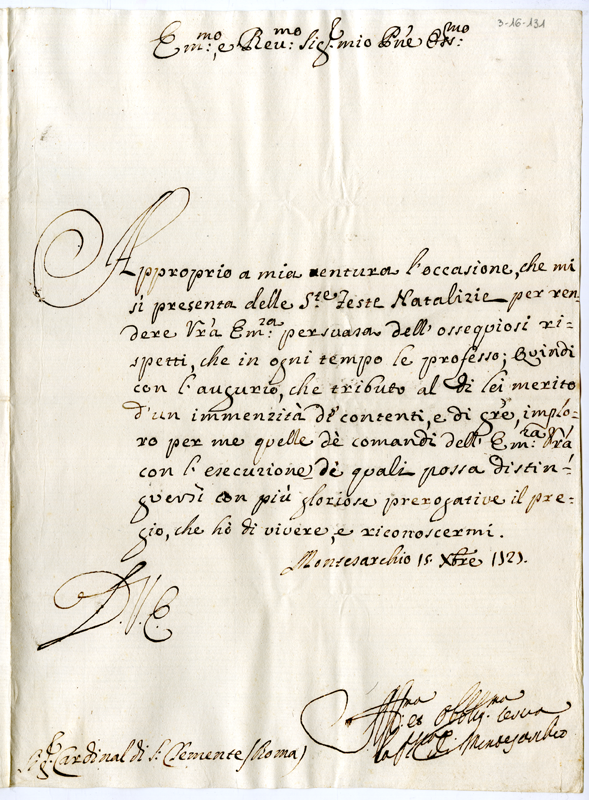 3-16-131
Em:mo e Reu:mo Sig:r mio Pne Oss:mo
Approprio a mia uentura l'occasione, che mi
si presenta delle S:te Feste Natalizie per ren-
dere Vra Em:za persuasa dell'ossequiosi ri-
spetti, che in ogni tempo le professo; Quindi
con l'augurio, che tributo al di lei merito
d'un immenzità di contenti, e di gre, implo-
ro per me quelle dè comandi dell'Em:za Vra
con l'esecuzione dè quali possa distin-
guersi con più gloriose prerogative il pre-
gio, che hò di vivere, e riconoscermi.
Montesarchio 15 Xbre 1727.
D. V. E.
S:r Cardinal di S. Clemente (Roma)
Aff:ma et Obblig:ma
la P. di Montesarchio